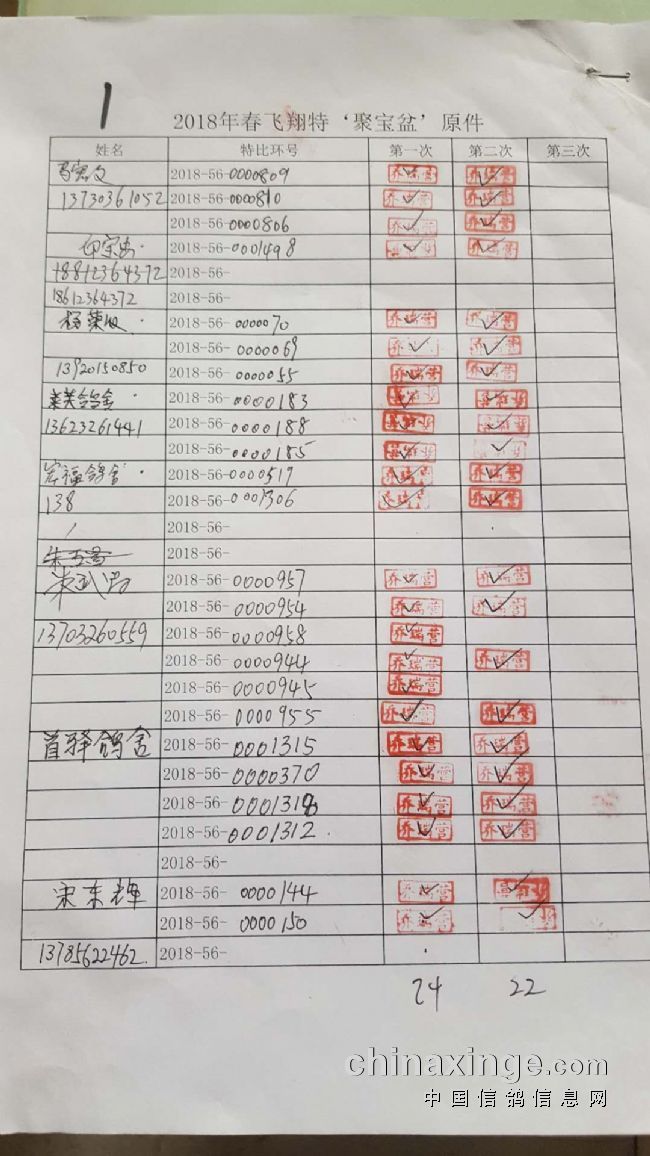 1
2018年春飞翔特‘聚宝盆’原件
姓名 特比环号 第一次 第二次 第三次
2018-56-0000809 乔瑞营 乔瑞营
13730361052 2018-56-0000810 乔瑞营 乔瑞营
2018-56-0000806 乔瑞营 乔瑞营
2018-56-0001498
18812364372 2018-56-
18612364372 2018-56-
2018-56-0000070 乔瑞营 乔瑞营
2018-56-0000069 乔瑞营 乔瑞营
13920150850 2018-56-0000055 乔瑞营 乔瑞营
2018-56-0000183
13623261441 2018-56-0000188
2018-56-0000185
宏福鸽舍 2018-56-0000517 乔瑞营 乔瑞营
138 2018-56-0001306 乔瑞营 乔瑞营
2018-56-
2018-56-
2018-56-0000957 乔瑞营 乔瑞营
2018-56-0000954 乔瑞营 乔瑞营
13703260559 2018-56-0000958 乔瑞营
2018-56-0000944 乔瑞营 乔瑞营
2018-56-0000945 乔瑞营
2018-56-0000955 乔瑞营 乔瑞营
首驿鸽舍 2018-56-0001315 乔瑞营 乔瑞营
2018-56-0000370 乔瑞营 乔瑞营
2018-56- 乔瑞营 乔瑞营
2018-56-0001312 乔瑞营 乔瑞营
2018-56-
宋东辉 2018-56-0000144 乔瑞营
2018-56-0000150 乔瑞营
13785622462 2018-56-
24 22
chinaxinge.com
中国信鸽信息网